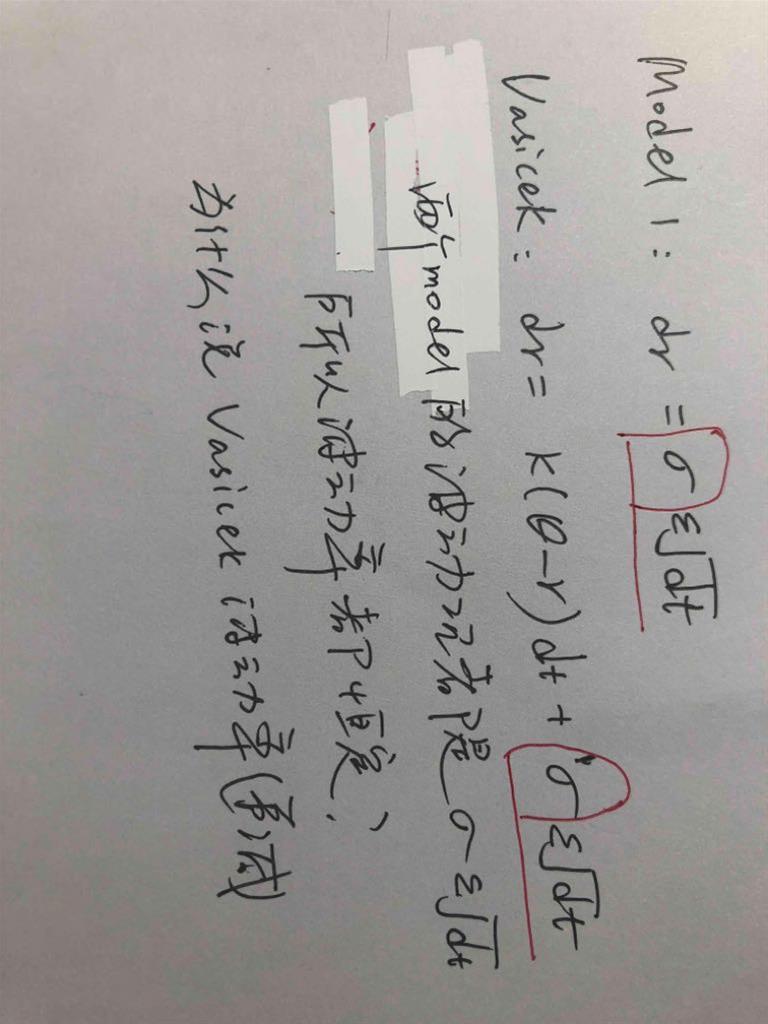 Model 1: dr = σ ε√dt
Vasicek: dr = k(θ-r)dt + σ ε√dt
两个model的波动项都是 σ ε√dt
所以波动率都恒定,
为什么说 Vasicek 波动率(递减)